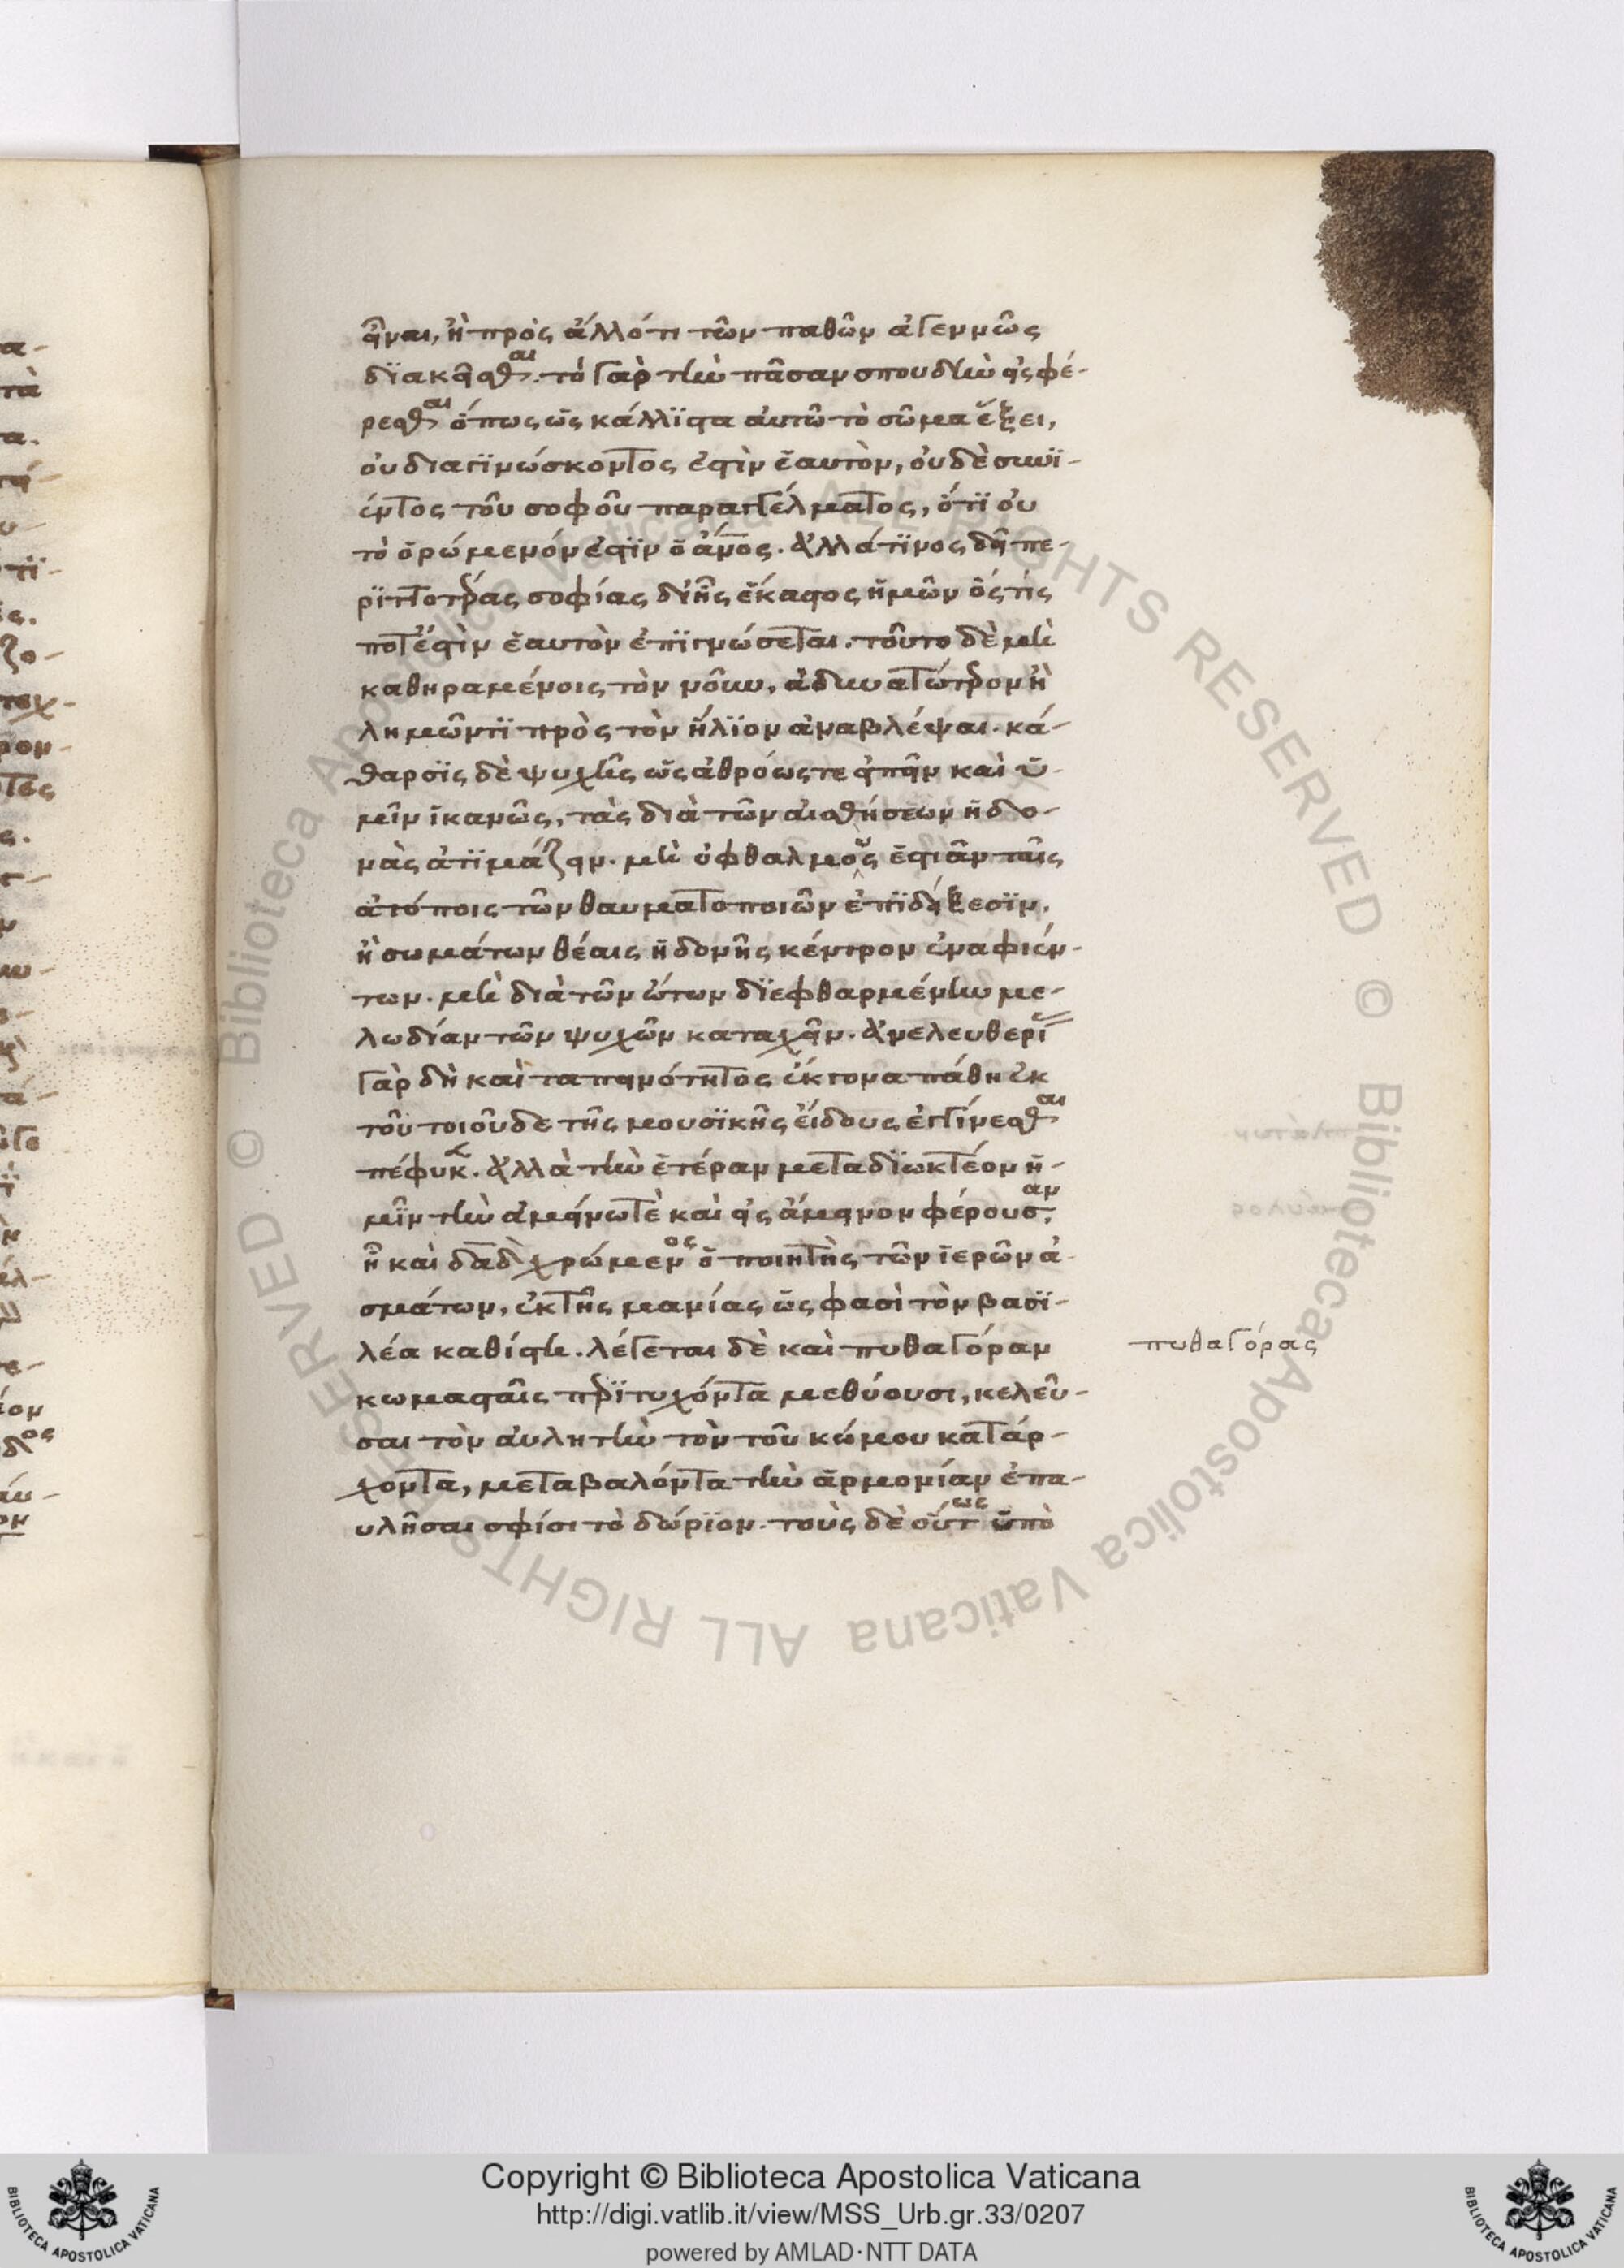 εῖναι, ἢ πρὸς ἄλλό τι τῶν παθῶν ἀγεννῶς
διακεῖσθαι. τὸ γὰρ τὴν πᾶσαν σπουδὴν εἰσφέ-
ρεσθαι ὅπως ὡς κάλλιστα αὐτῶ τὸ σῶμα ἕξει,
οὐ διαγινώσκοντος ἐστὶν ἑαυτὸν, οὐδὲ συνϊ-
έντος τοῦ σοφοῦ παραγγέλματος, ὅτι οὐ
τὸ ὁρώμενόν ἐστιν ὁ ἄνος. ἀλλά τινος δεῖ πε-
ριττοτέρας σοφίας δι' ἧς ἕκαστος ἡμῶν ὅς τίς
ποτ' ἐστὶν ἑαυτὸν ἐπιγνώσεται. τοῦτο δὲ μὴ
καθηραμένοις τὸν νοῦν, ἀδυνατώτερον ἢ
λημῶντι πρὸς τὸν ἥλιον ἀναβλέψαι. κά-
θαρσις δὲ ψυχῆς ὡς ἀθρόως τε εἰπεῖν καὶ ὑ-
μῖν ἱκανῶς, τὰς διὰ τῶν αἰσθήσεων ἡδο-
νὰς ἀτιμάζειν. μὴ ὀφθαλμοὺς ἑστιᾶν ταῖς
ἀτόποις τῶν θαυματοποιῶν ἐπιδείξεσιν.
ἢ σωμάτων θέαις ἡδονῆς κέντρον ἐναφιέν-
των. μὴ διὰ τῶν ὤτων διεφθαρμένην με-
λωδίαν τῶν ψυχῶν καταχεῖν. ἀνελευθερί
γὰρ δὴ καὶ ταπεινότητος ἔκγονα πάθη ἐκ
τοῦ τοιοῦδε τῆς μουσικῆς εἴδους ἐγγίνεσθαι
πέφυκ. ἀλλὰ τὴν ἑτέραν μεταδιωκτέον ἡ-
μῖν τὴν ἀμείνω τὲ καὶ εἰς ἄμεινον φέρουσαν.
ἧ καὶ δαδ χρώμενος ὁ ποιητὴς τῶν ἱερῶν ἀ-
σμάτων, ἐκ τῆς μανίας ὥς φασὶ τὸν βασι-
λέα καθίστη. λέγεται δὲ καὶ πυθαγόραν
κωμασταῖς περιτυχόντα μεθύουσι, κελεῦ-
σαι τὸν αὐλητὴν τὸν τοῦ κώμου κατάρ-
χοντα, μεταβαλόντα τὴν ἁρμονίαν ἐπα-
υλῆσαι σφίσι τὸ δώριον. τοὺς δὲ οὕτως ὑπὸ
πυθαγόρας
Copyright © Biblioteca Apostolica Vaticana
http://digi.vatlib.it/view/MSS_Urb.gr.33/0207
powered by AMLAD·NTT DATA